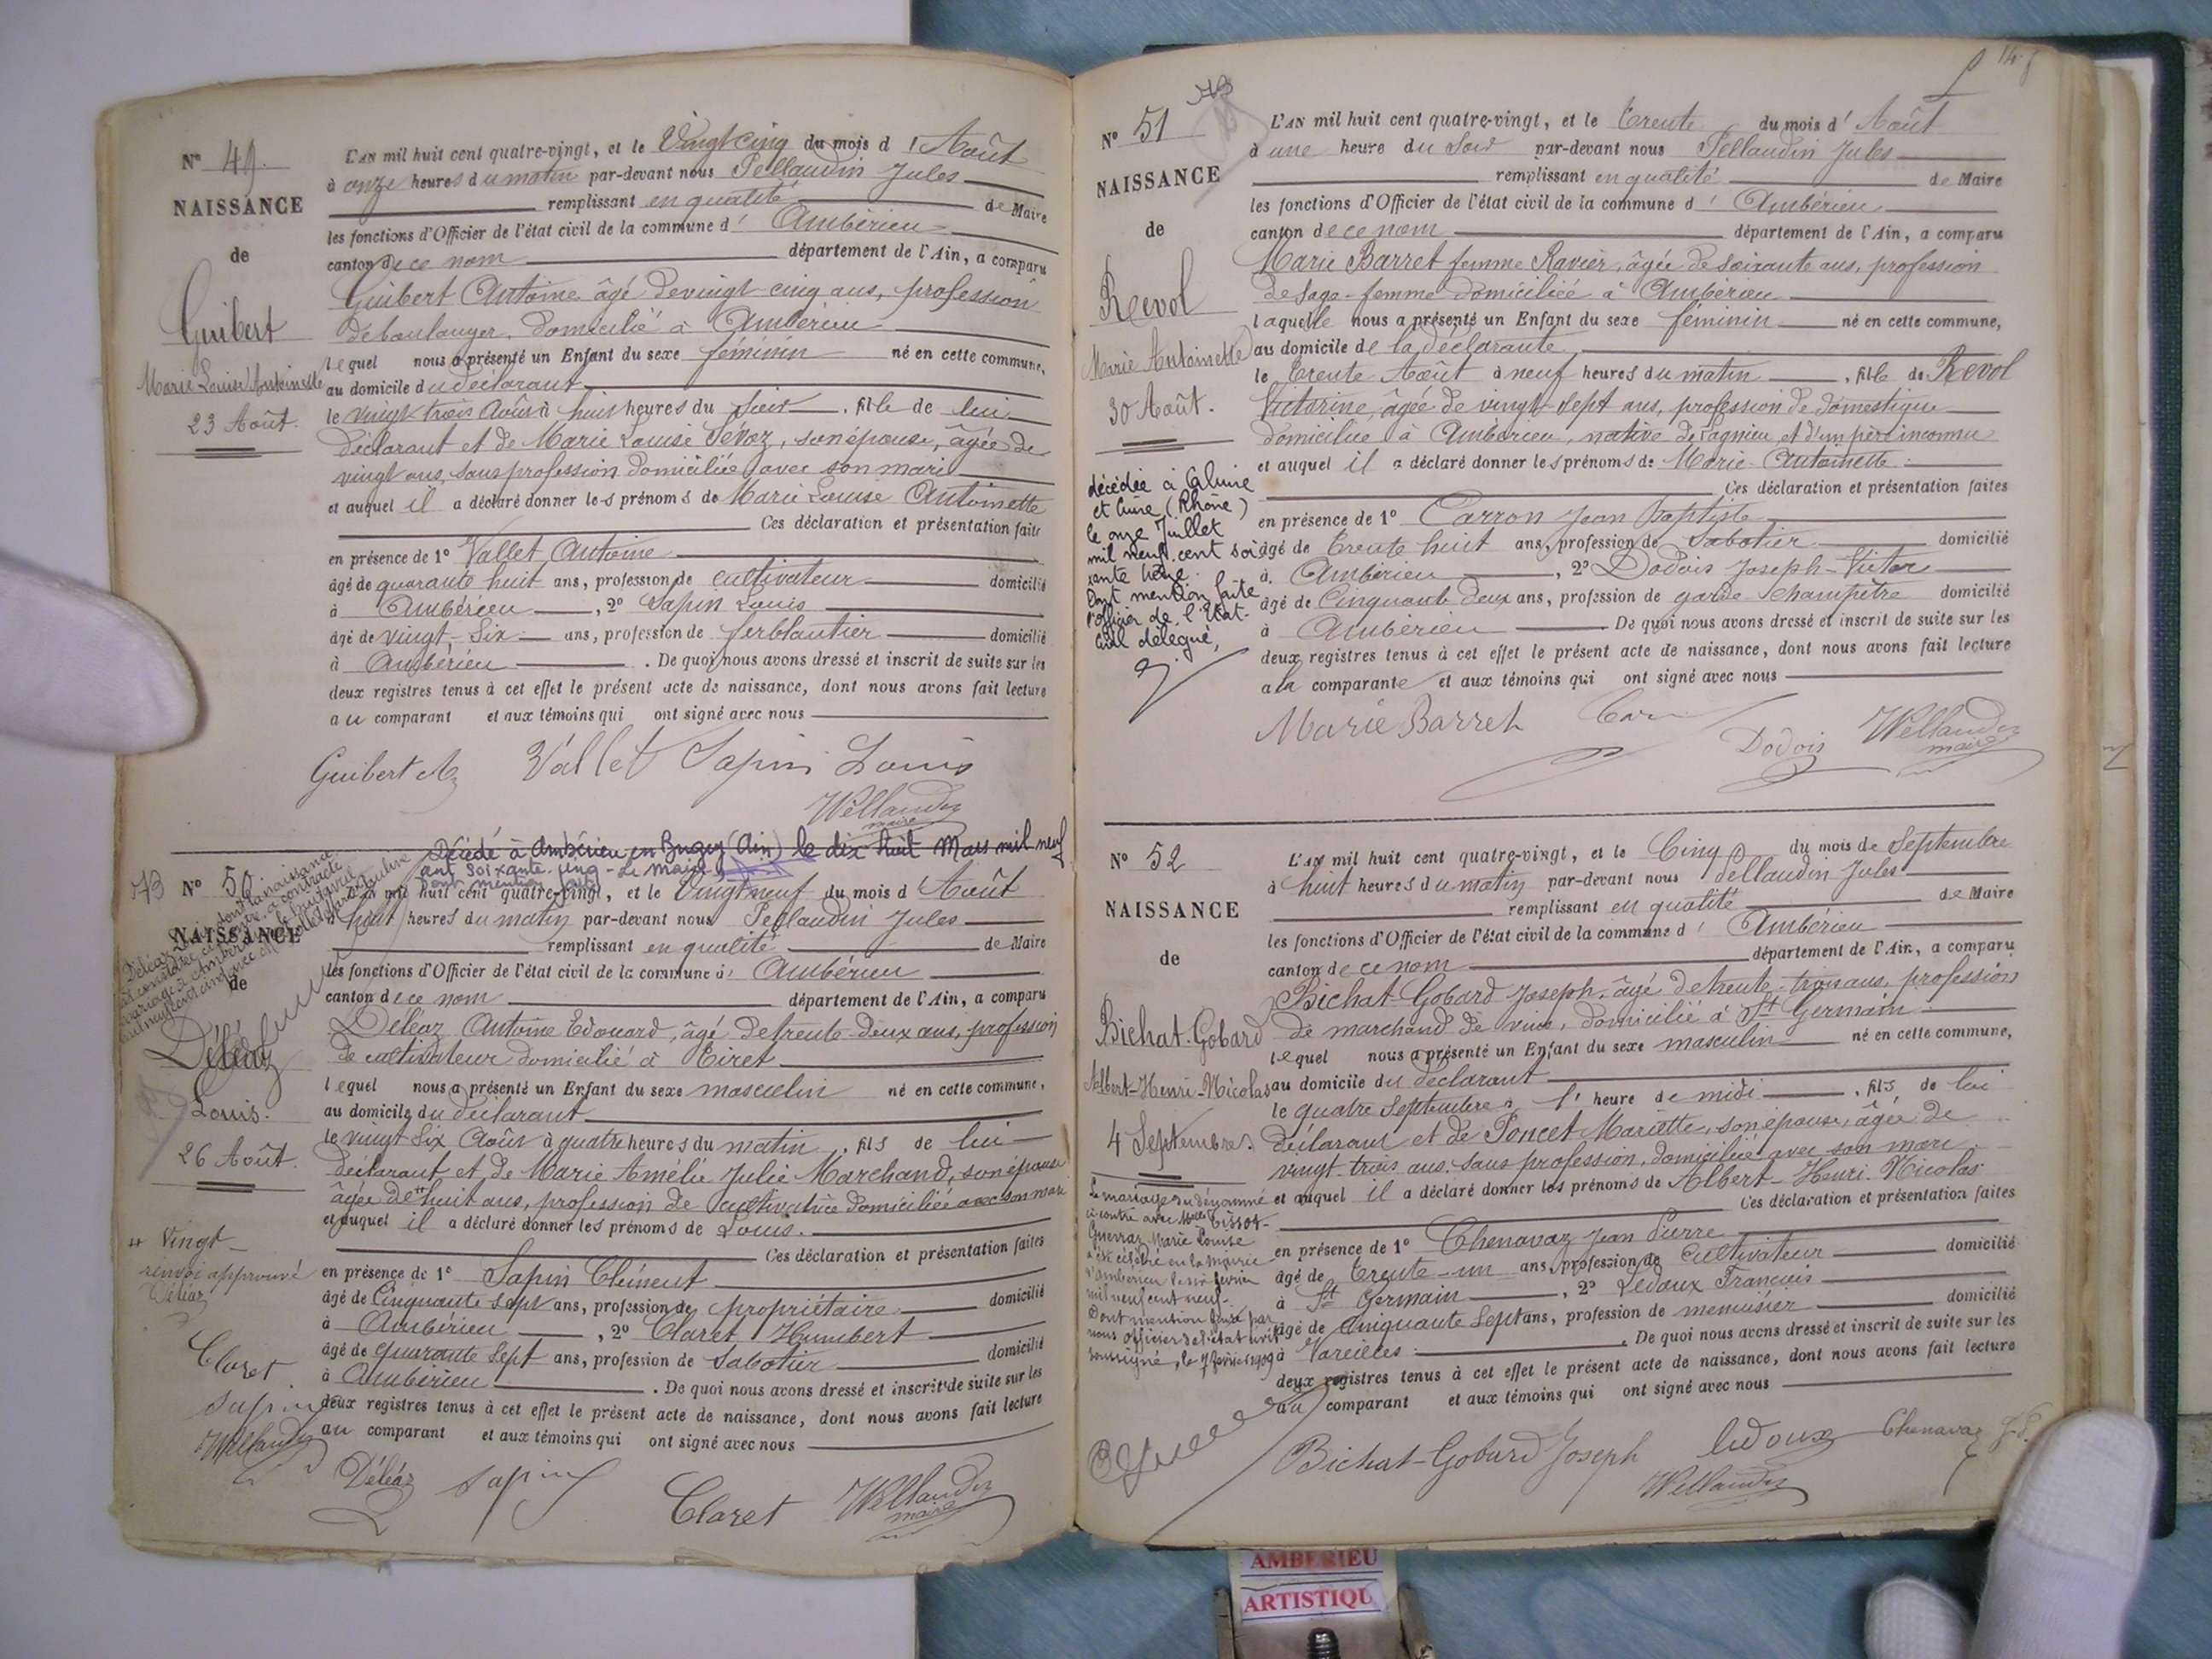 N° 49.
NAISSANCE
de
Guibert
Marie Louise Antoinette
23 Août.
L'AN mil huit cent quatre-vingt, et le Vingt cinq du mois d'Août
à onze heures du matin par-devant nous Pellaudin Jules
remplissant en qualité de Maire
les fonctions d'Officier de l'état civil de la commune d'Ambérieu
canton de ce nom département de l'Ain, a comparu
Guibert Antoine âgé de vingt-cinq ans, profession
de boulanger, domicilié à Ambérieu
lequel nous a présenté un Enfant du sexe féminin né en cette commune,
au domicile du déclarant
le vingt trois Août à huit heures du soir, fille de lui
déclarant et de Marie Louise Sévoz, son épouse, âgée de
vingt ans, sans profession domiciliée avec son mari
et auquel il a déclaré donner les prénoms de Marie Louise Antoinette
Ces déclaration et présentation faite
en présence de 1° Vallet Antoine
âgé de quarante huit ans, profession de cultivateur domicilié
à Ambérieu, 2° Sapin Louis
âgé de vingt-six ans, profession de ferblantier domicilié
à Ambérieu. De quoi nous avons dressé et inscrit de suite sur les
deux registres tenus à cet effet le présent acte de naissance, dont nous avons fait lecture
au comparant et aux témoins qui ont signé avec nous
Guibert A Vallet Sapin Louis
Pellaudin
maire
Décédé à Ambérieu en Bugey (Ain) le dix huit Mars mil neuf
cent soixante-cinq - Le Maire,
Dont mention faite
73 N° 50
NAISSANCE
de
Déléaz
Louis.
26 Août.
L'AN mil huit cent quatre-vingt, et le Vingt neuf du mois d'Août
à huit heures du matin par-devant nous Pellaudin Jules
remplissant en qualité de Maire
les fonctions d'Officier de l'état civil de la commune d'Ambérieu
canton de ce nom département de l'Ain, a comparu
Déléaz Antoine Edouard, âgé de trente-deux ans, profession
de cultivateur domicilié à Tiret
lequel nous a présenté un Enfant du sexe masculin né en cette commune,
au domicile du déclarant
le vingt six Août à quatre heures du matin, fils de lui
déclarant et de Marie Amélie Julie Marchand, son épouse
âgée de # huit ans, profession de cultivatrice domiciliée avec son mari
et auquel il a déclaré donner les prénoms de Louis.
Ces déclaration et présentation faites
# Vingt
renvoi approuvé
Déléaz
en présence de 1° Sapin Clément
âgé de Cinquante sept ans, profession de propriétaire domicilié
à Ambérieu, 2° Claret Humbert
âgé de quarante sept ans, profession de sabotier domicilié
à Ambérieu. De quoi nous avons dressé et inscrit de suite sur les
deux registres tenus à cet effet le présent acte de naissance, dont nous avons fait lecture
au comparant et aux témoins qui ont signé avec nous
Claret
Sapin
Pellaudin
Déléaz Sapin Claret Pellaudin
maire
N° 51
NAISSANCE
de
Revol
Marie Antoinette
30 Août.
L'AN mil huit cent quatre-vingt, et le trente du mois d'Août
à une heure du soir par-devant nous Pellaudin Jules
remplissant en qualité de Maire
les fonctions d'Officier de l'état civil de la commune d'Ambérieu
canton de ce nom département de l'Ain, a comparu
Marie Barret femme Ravier, âgée de soixante ans, profession
de sage-femme domiciliée à Ambérieu
laquelle nous a présenté un Enfant du sexe féminin né en cette commune,
au domicile de la déclarante
le trente Août à neuf heures du matin, fille de Revol
Victorine, âgée de vingt-sept ans, profession de domestique
domiciliée à Ambérieu, native de Lagnieu, et d'un père inconnu
et auquel il a déclaré donner les prénoms de Marie-Antoinette
Ces déclaration et présentation faites
décédée à Caluire
et Cuire (Rhône)
le onze Juillet
mil neuf cent soi
xante treize.
Dont mention faite
l'officier de l'état-
civil délégué,
en présence de 1° Carron Jean Baptiste
âgé de trente huit ans, profession de sabotier domicilié
à Ambérieu, 2° Dodois Joseph-Victor
âgé de Cinquante deux ans, profession de garde champêtre domicilié
à Ambérieu De quoi nous avons dressé et inscrit de suite sur les
deux registres tenus à cet effet le présent acte de naissance, dont nous avons fait lecture
a la comparante et aux témoins qui ont signé avec nous
Marie Barret Dodois Pellaudin
maire
N° 52
NAISSANCE
de
Bichat-Gobard
Albert-Henri-Nicolas
4 Septembre.
L'AN mil huit cent quatre-vingt, et le Cinq du mois de Septembre
à huit heures du matin par-devant nous Pellaudin Jules
remplissant en qualité de Maire
les fonctions d'Officier de l'état civil de la commune d'Ambérieu
canton de ce nom département de l'Ain, a comparu
Bichat-Gobard Joseph, âgé de trente-trois ans, profession
de marchand de vins, domicilié à St Germain
lequel nous a présenté un Enfant du sexe masculin né en cette commune,
au domicile du déclarant
le quatre Septembre à l'heure de midi, fils de lui
déclarant et de Poncet Mariette, son épouse, âgée de
vingt-trois ans, sans profession, domiciliée avec son mari
et auquel il a déclaré donner les prénoms de Albert-Henri-Nicolas
Ces déclaration et présentation faites
Le mariage du dénommé
ci contre avec Melle Tissot-
Guerraz Marie Louise
a été célébré en la mairie
d'Ambérieu le six février
mil neuf cent neuf.
Dont mention faite par
nous officier de l'état civil
soussigné, le 7 février 1909
en présence de 1° Chenavaz Jean Pierre
âgé de trente-un ans, profession de cultivateur domicilié
à St Germain, 2° Ledoux François
âgé de Cinquante Sept ans, profession de menuisier domicilié
à Vareilles. De quoi nous avons dressé et inscrit de suite sur les
deux registres tenus à cet effet le présent acte de naissance, dont nous avons fait lecture
au comparant et aux témoins qui ont signé avec nous
Bichat-Gobard Joseph Ledoux Chenavaz J-P.
Pellaudin
AMBERIEU
ARTISTIQU